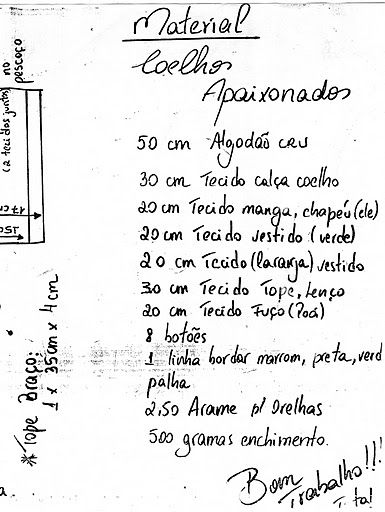 Material
Coelhos
Apaixonados
50 cm Algodão cru
30 cm Tecido calça coelho
20 cm Tecido manga, chapéu (ele)
20 cm Tecido vestido (verde)
20 cm Tecido (laranja) vestido
30 cm Tecido Tope, Lenço
20 cm Tecido Fuço (Poá)
8 botões
1 linha bordar marrom, preta, verd
palha
2,50 Arame p/ Orelhas
500 gramas enchimento.
Bom
Trabalho!!!
no
pescoço
(2 tecidos juntos)
17 cm
15 cm
* Tope Braço:
1 x 35 cm x 4 cm
a.